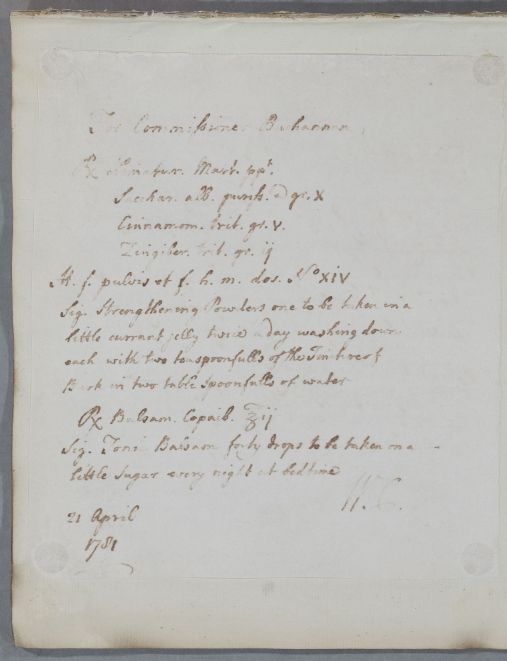 For Commissioner Buhannan
℞ Limatur. Mart. ppt.
Sacchar. alb. puriss. a gr. X
Cinnamom. trit. gr. V.
Zingiber. trit. gr. ij
M. f. pulvis et f. h. m. dos. No XIV
Sig. Strengthening Powders one to be taken in a
little currant jelly twice a day washing down
each with two teaspoonfulls of the Tincture of
Bark in two table spoonfulls of water
℞ Balsam. Copaib. ℥ij
Sig. Tonic Balsam forty drops to be taken on a
little Sugar every night at bedtime
21 April
1781